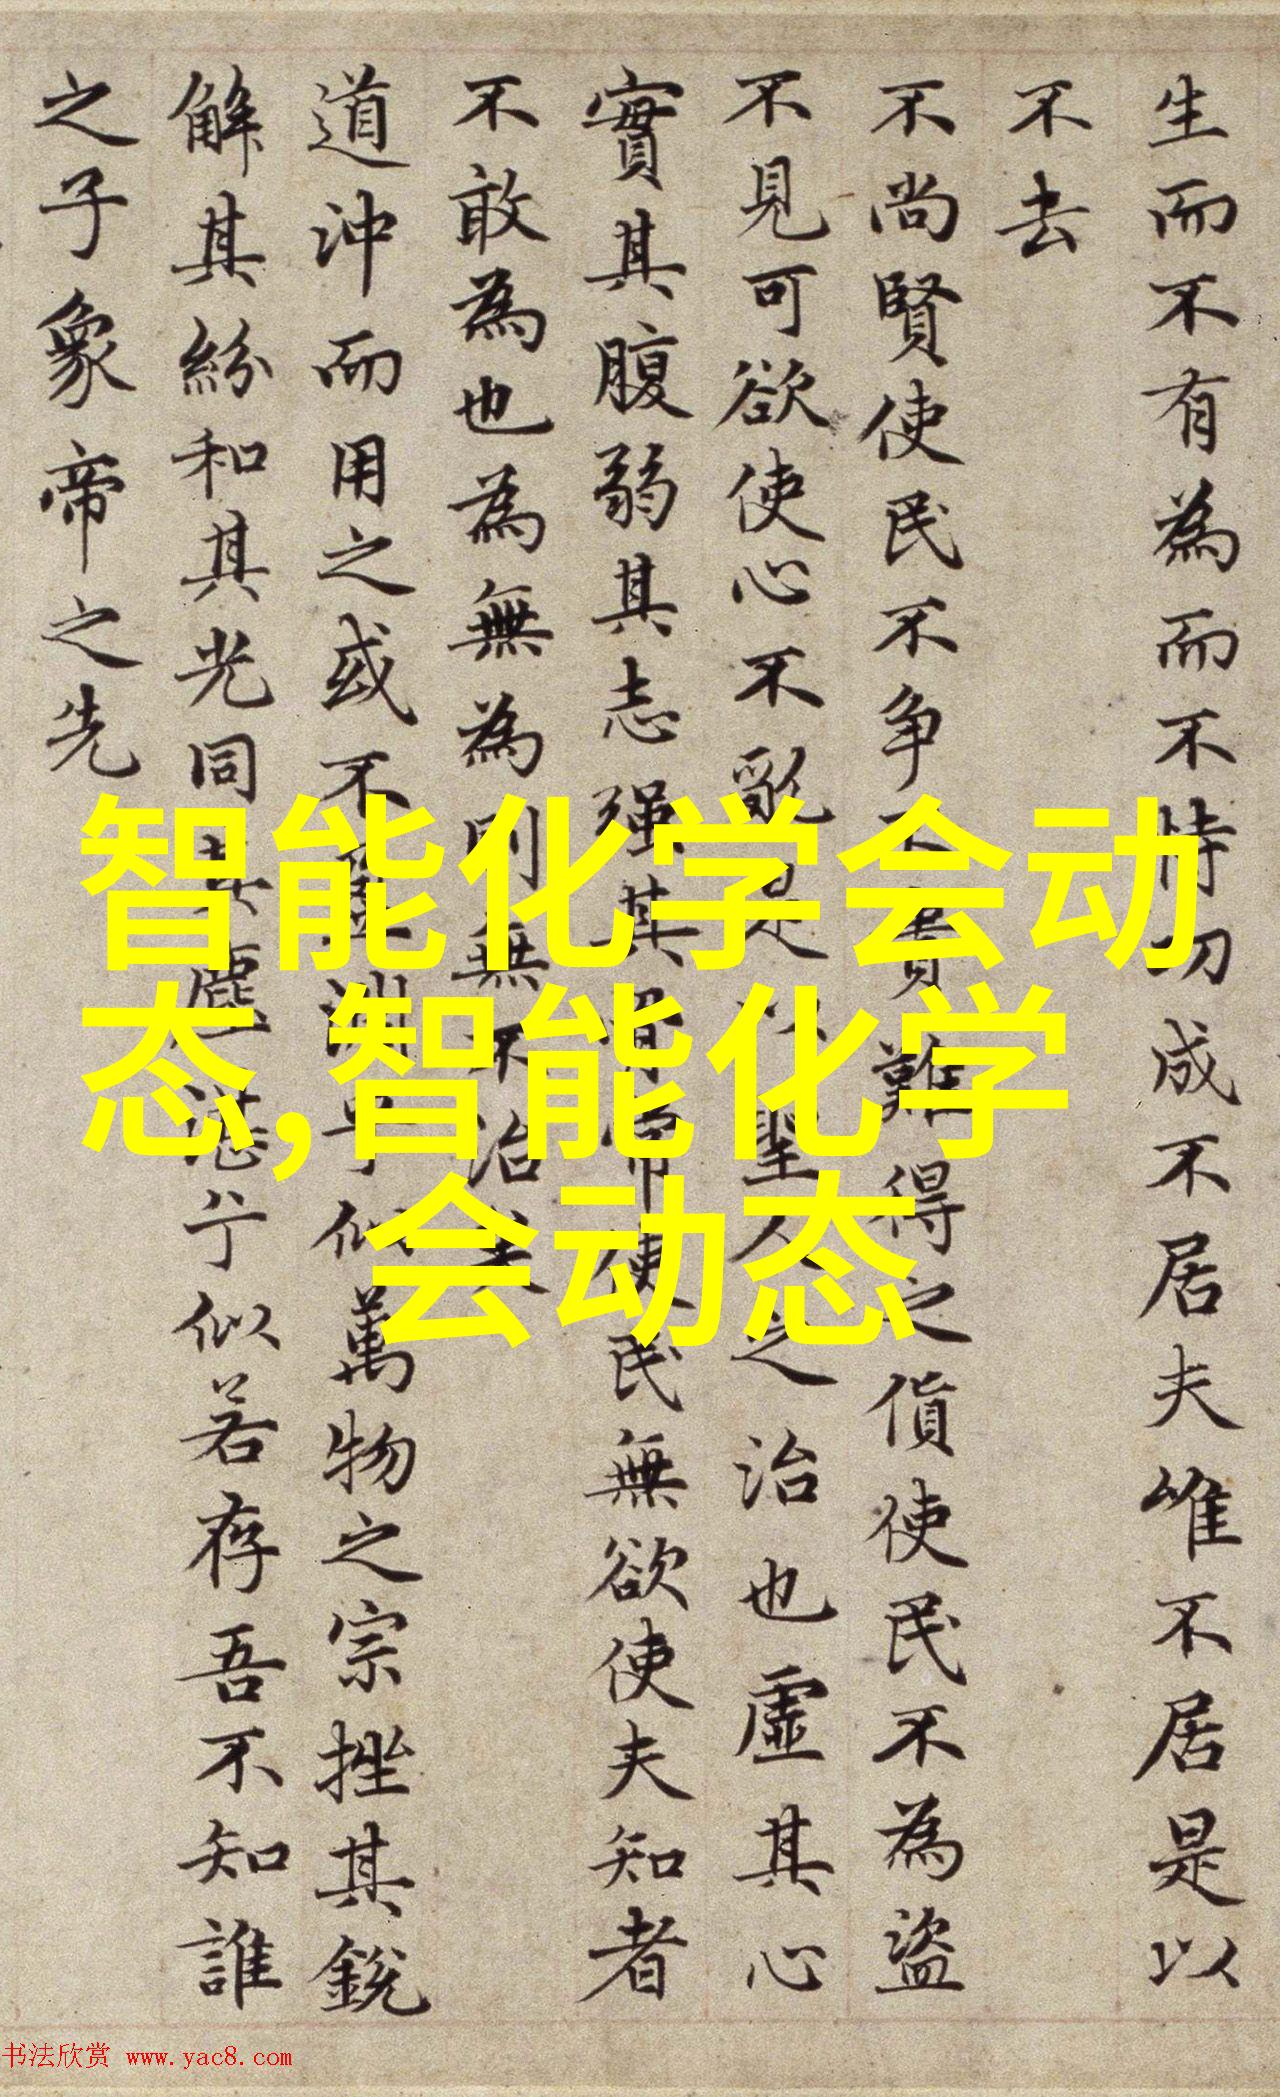 生而不有為而不恃功成不居夫唯不居是以
不去
不尚賢使民不争不貴難得之貨使民不為盜
不見可欲使心不亂是以聖人之治也虛其心
實其腹弱其志强其骨常使民無欲使夫知者
不敢為也為無為則無不治矣
道沖而用之或不盈淵乎似萬物之宗挫其銳
解其紛和其光同其塵湛兮似若存吾不知誰
之子象帝之先
智能化学会动
态,智能化学
会动态
书法欣赏 www.yac8.com